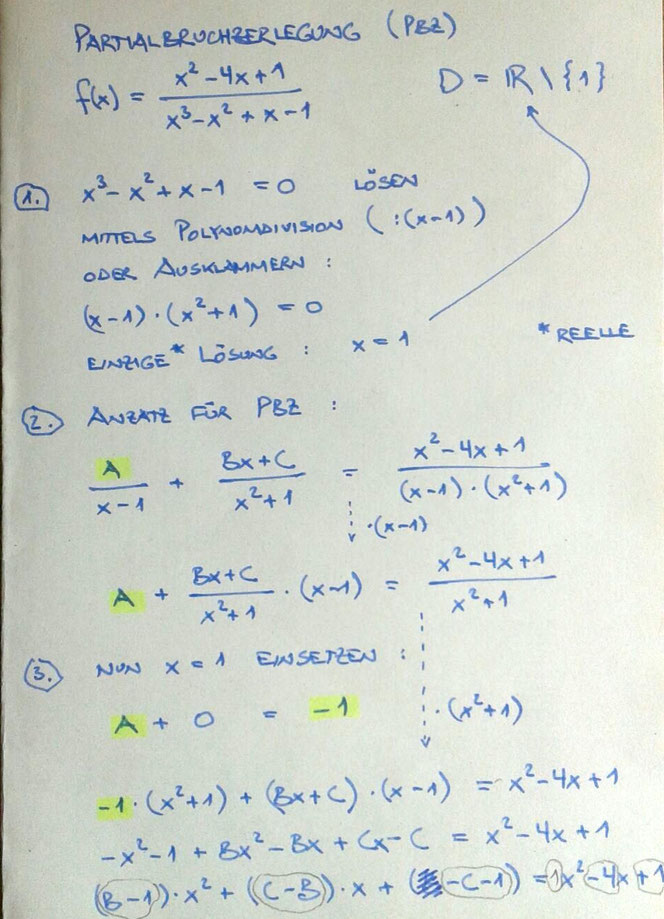 PARTIALBRUCHZERLEGUNG (PBZ)
f(x) = (x² - 4x + 1) / (x³ - x² + x - 1)    D = ℝ \ {1}
1. x³ - x² + x - 1 = 0 LÖSEN
MITTELS POLYNOMDIVISION ( :(x-1) )
ODER AUSKLAMMERN :
(x-1) · (x²+1) = 0
EINZIGE* LÖSUNG : x = 1    *REELLE
2. ANZATZ FÜR PBZ :
A / (x-1) + (Bx+C) / (x²+1) = (x² - 4x + 1) / ((x-1) · (x²+1))
·(x-1)
A + (Bx+C) / (x²+1) · (x-1) = (x² - 4x + 1) / (x²+1)
3. NUN x = 1 EINSETZEN :
A + 0 = -1    ·(x²+1)
-1·(x²+1) + (Bx+C)·(x-1) = x² - 4x + 1
-x² - 1 + Bx² - Bx + Cx - C = x² - 4x + 1
(B-1)·x² + (C-B)·x + (-C-1) = 1x² - 4x + 1